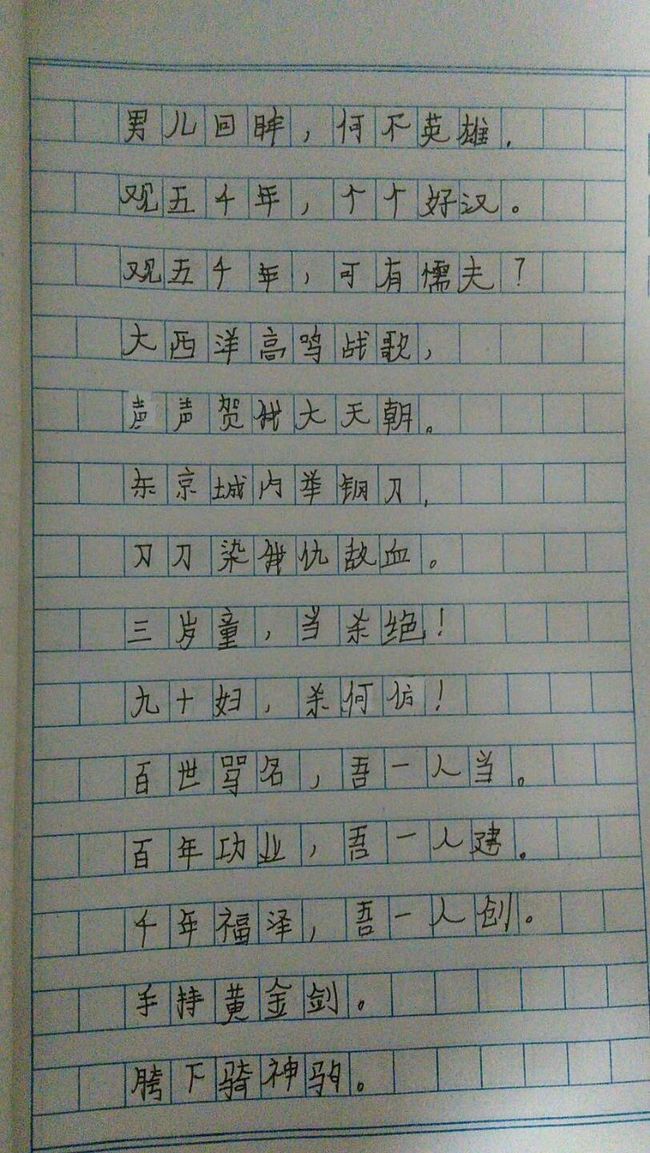 男儿回眸，何不英雄.
观五千年，个个好汉。
观五千年，可有懦夫？
大西洋高鸣战歌，
声声贺我大天朝。
东京城内举钢刀，
刀刀染我仇敌血。
三岁童，当杀绝！
九十妇，杀何伤！
百世骂名，吾一人当。
百年功业，吾一人建。
千年福泽，吾一人创。
手持黄金剑。
胯下骑神驹。